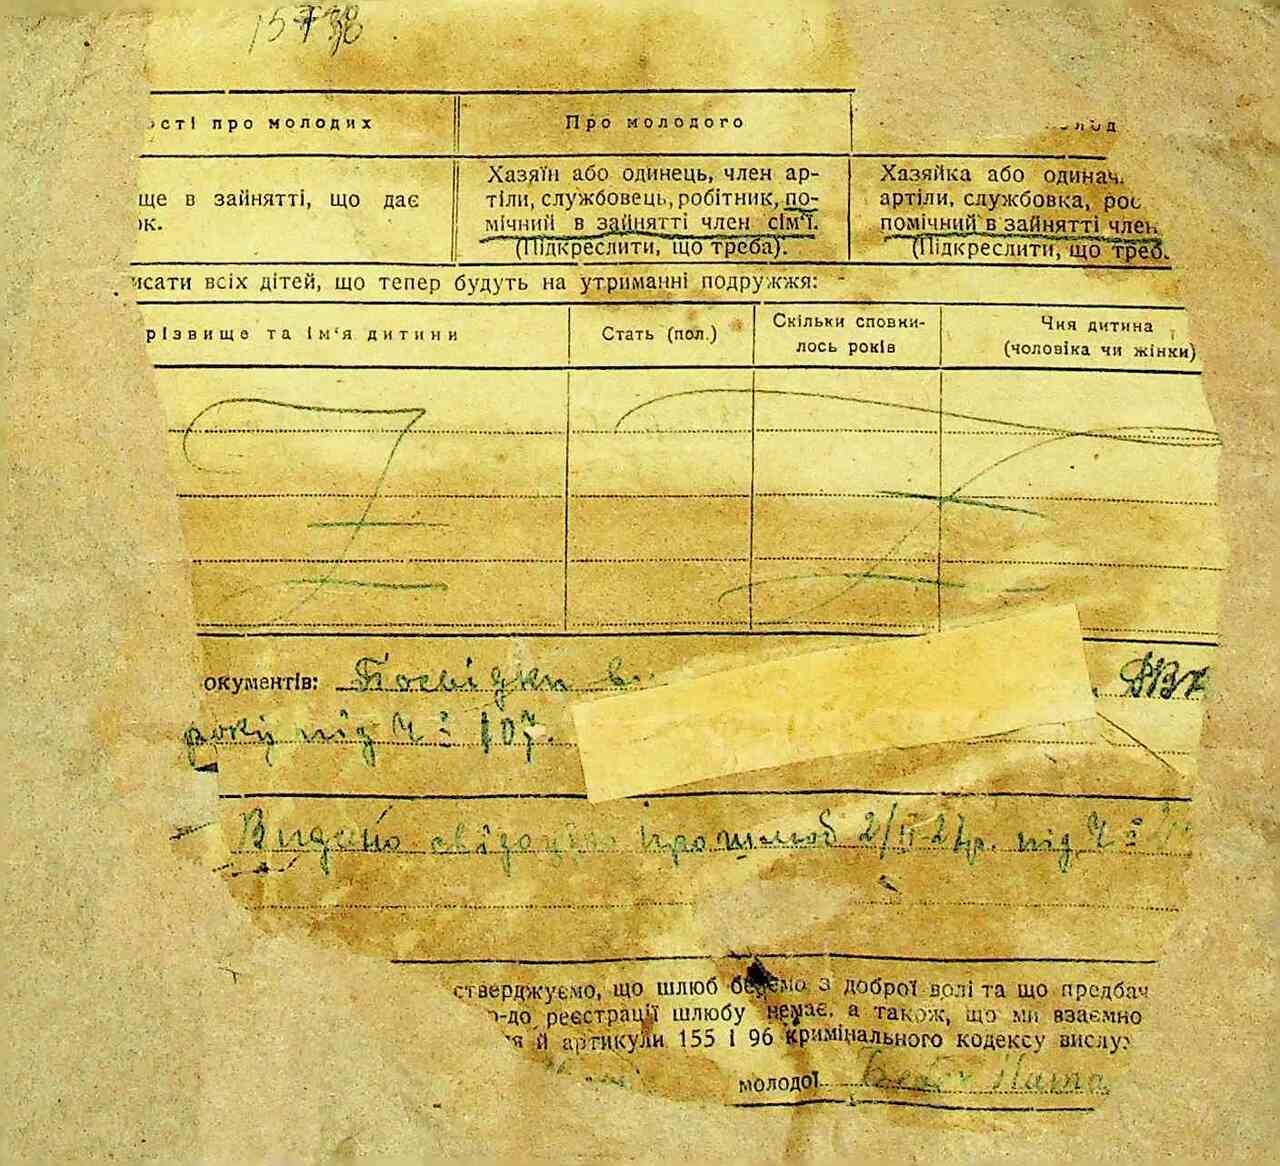 ості про молодих
Про молодого
ще в зайнятті, що дає
ок.
Хазяїн або одинець, член ар-
тіли, службовець, робітник, по-
мічний в зайнятті член сім'ї.
(Підкреслити, що треба).
Хазяйка або одинач
артіли, службовка, роб
помічний в зайнятті член
(Підкреслити, що треб.
исати всіх дітей, що тепер будуть на утриманні подружжя:
різвище та ім'я дитини
Стать (пол.)
Скільки сповни-
лось років
Чия дитина
(чоловіка чи жінки)
окументів: Посвідки
року під Ч: 107.
Видано свідоцтво про шлюб під Ч:
стверджуємо, що шлюб беремо з доброї волі та що предбач
о-до реєстрації шлюбу немає, а також, що ми взаємно
я й артикули 155 і 96 кримінального кодексу вислу
молодої